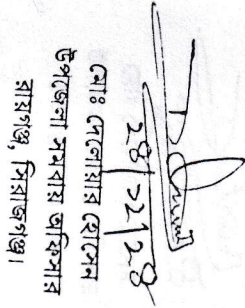 ২৪/১২/২৪
মোঃ দেলোয়ার হোসেন
উপজেলা সমবায় অফিসার
রায়গঞ্জ, সিরাজগঞ্জ।